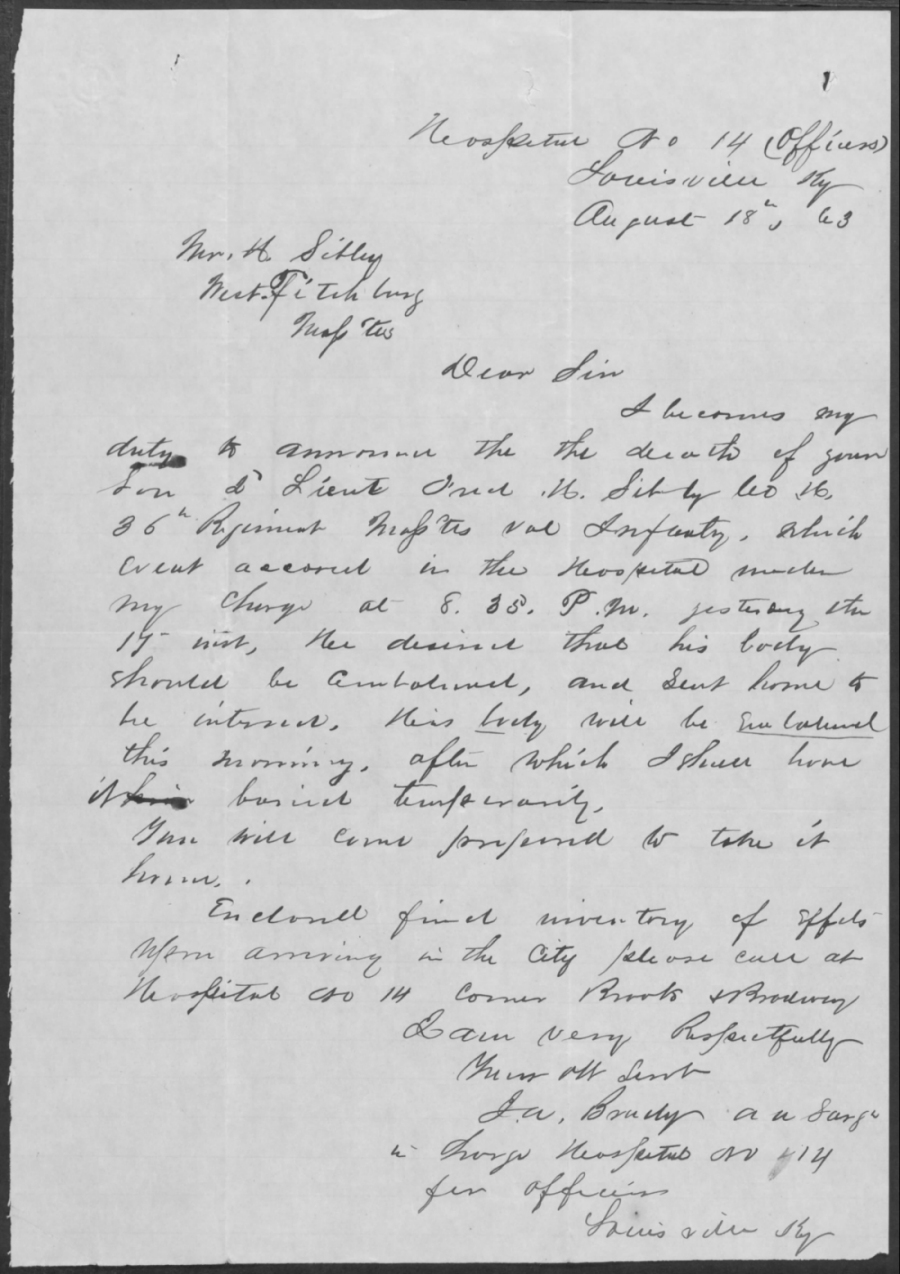 Hospital No 14 (Officers)
Louisville Ky
August 18th, 63
Mr. H Sibley
West Fitchburg
Mass'tts
Dear Sir
I becomes my
duty to announce the the death of your
Son Lieut Fred. H. Sibly Co H.
36th Regiment Mass'tts Vol Infanty, which
event accored in the Hospital under
my Charge at 8. 35. P.M. yesterday the
17 inst, He desired that his body
should be Embalmed, and Sent home to
be interred. His body will be Embalmed
this morning, after which I Shall have
it buried temporarily.
You will come prepared to take it
home.
Enclosed find inventory of Effects
Upon arriving in the City please call at
Hospital No 14 Corner Brook & Brodway
I am very Respectfully
Your Obt Servt
J.A. Brady A A Surgn
in Charge Hospital No 14
for officers
Louisville Ky